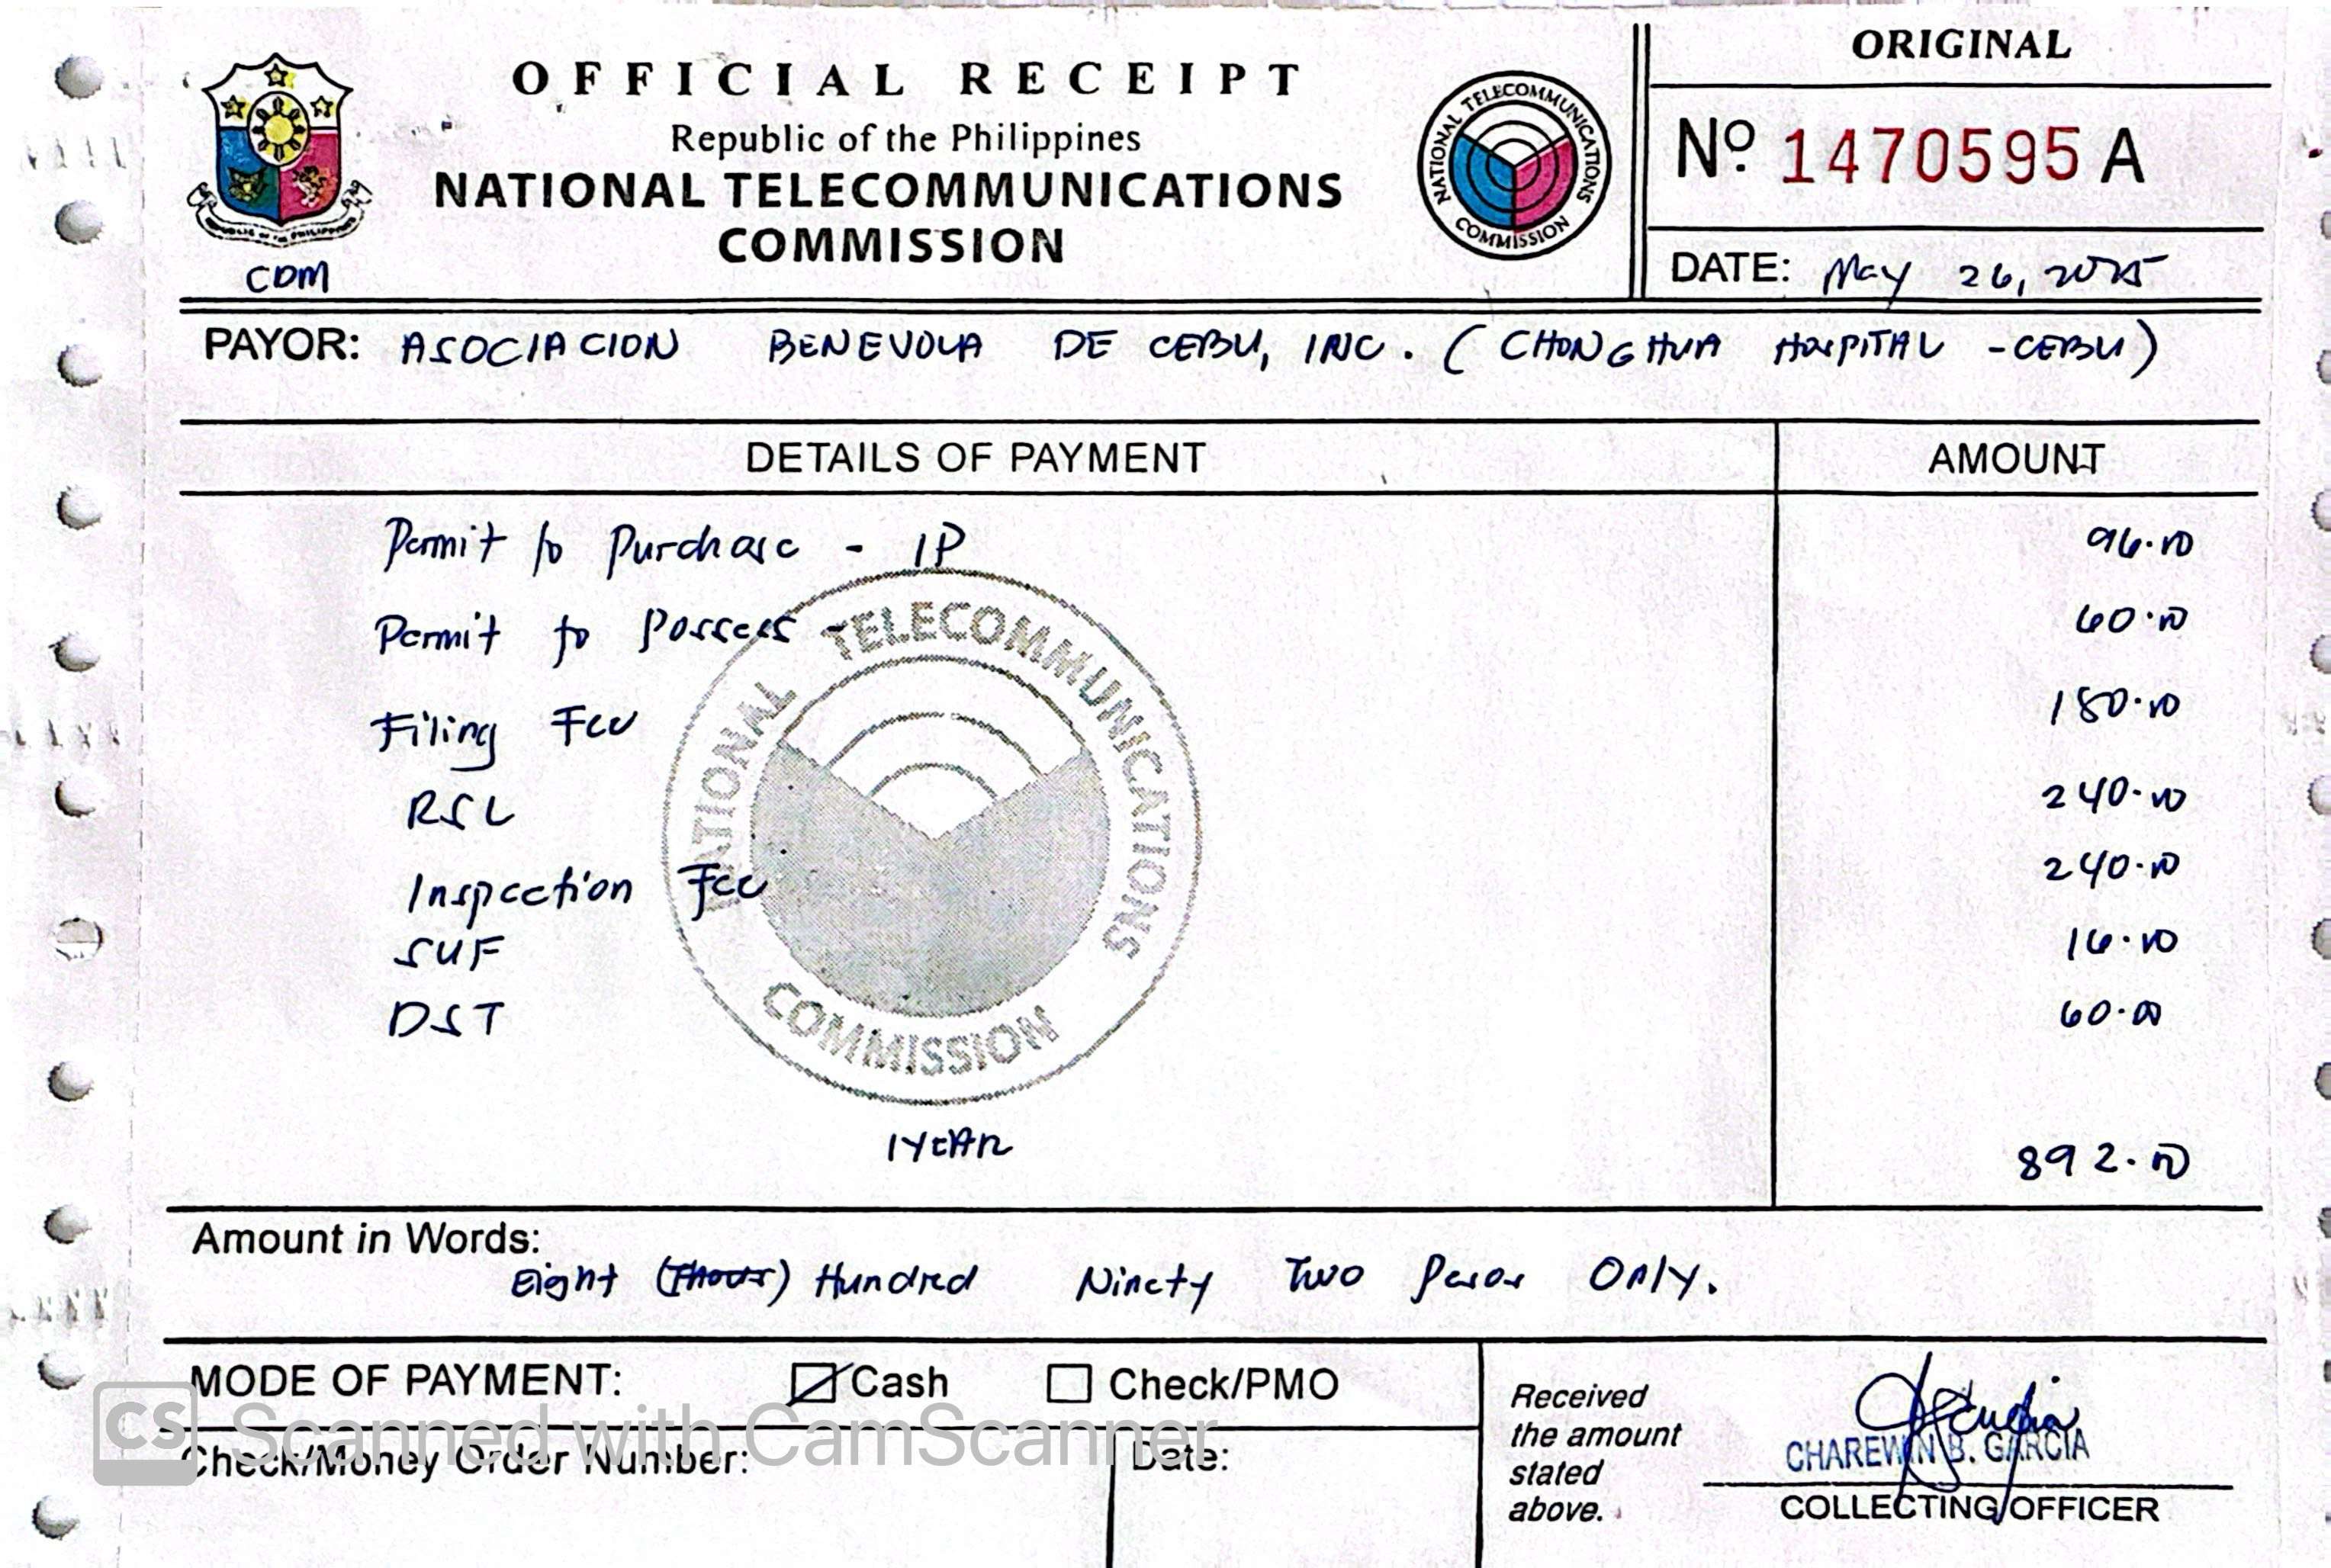 ORIGINAL
OFFICIAL RECEIPT
Republic of the Philippines
NATIONAL TELECOMMUNICATIONS
COMMISSION
NATIONAL TELECOMMUNICATIONS COMMISSION
REPUBLIC OF THE PHILIPPINES
Nº 1470595 A
CDM
DATE: May 26, 2025
PAYOR: ASOCIACION BENEVOLA DE CEBU, INC. (CHONGHUA HOSPITAL - CEBU)
DETAILS OF PAYMENT AMOUNT
Permit to Purchase - 1P 96.00
Permit to Possess - 60.00
Filing Fee 180.00
RSL 240.00
Inspection Fee 240.00
SUF 16.00
DST 60.00
NATIONAL TELECOMMUNICATIONS COMMISSION
1 YEAR
892.00
Amount in Words:
Eight (Thous) Hundred Ninety Two Pesos Only.
MODE OF PAYMENT: Cash Check/PMO
Check/Money Order Number: Date:
Received
the amount
stated
above.
CHAREWIN B. GARCIA
COLLECTING OFFICER
CS Scanned with CamScanner